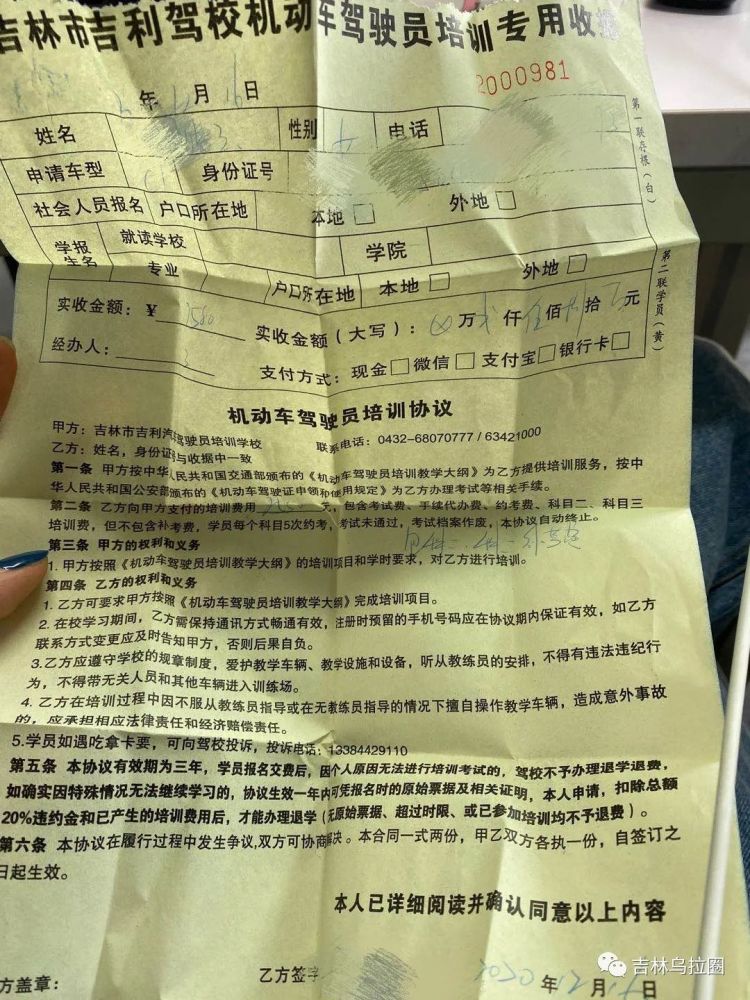 吉林市吉利驾校机动车驾驶员培训专用收据
2000981
年12月16日
姓名 性别 女 电话
申请车型 C1 身份证号
社会人员报名 户口所在地 本地□ 外地□
学生报名 就读学校 学院
专业 户口所在地 本地□ 外地□
实收金额：￥ 实收金额（大写）： 万 仟 佰 拾 元
经办人： 支付方式：现金□微信□支付宝□银行卡□
第一联存根（白）
第二联学员（黄）
机动车驾驶员培训协议
甲方：吉林市吉利汽车驾驶员培训学校 联系电话：0432-68070777 / 63421000
乙方：姓名，身份证号与收据中一致
第一条 甲方按中华人民共和国交通部颁布的《机动车驾驶员培训教学大纲》为乙方提供培训服务，按中
华人民共和国公安部颁布的《机动车驾驶证申领和使用规定》为乙方办理考试等相关手续。
第二条 乙方向甲方支付的培训费用 元，包含考试费、手续代办费、约考费、科目二、科目三
培训费，但不包含补考费，学员每个科目5次约考，考试未通过，考试档案作废，本协议自动终止。
第三条 甲方的权利和义务
1. 甲方按照《机动车驾驶员培训教学大纲》的培训项目和学时要求，对乙方进行培训。
第四条 乙方的权利和义务
1. 乙方可要求甲方按照《机动车驾驶员培训教学大纲》完成培训项目。
2. 在校学习期间，乙方需保持通讯方式畅通有效，注册时预留的手机号码应在协议期内保证有效，如乙方
联系方式变更应及时告知甲方，否则后果自负。
3.乙方应遵守学校的规章制度，爱护教学车辆、教学设施和设备，听从教练员的安排，不得有违法违纪行
为，不得带无关人员和其他车辆进入训练场。
4. 乙方在培训过程中因不服从教练员指导或在无教练员指导的情况下擅自操作教学车辆，造成意外事故
的，应承担相应法律责任和经济赔偿责任。
5.学员如遇吃拿卡要，可向驾校投诉，投诉电话：13384429110
第五条 本协议有效期为三年，学员报名交费后，因个人原因无法进行培训考试的，驾校不予办理退学退费，
如确实因特殊情况无法继续学习的，协议生效一年内可凭报名时的原始票据及相关证明，本人申请，扣除总额
20%违约金和已产生的培训费用后，才能办理退学（无原始票据、超过时限、或已参加培训均不予退费）。
第六条 本协议在履行过程中发生争议,双方可协商解决。本合同一式两份，甲乙双方各执一份，自签订之
日起生效。
本人已详细阅读并确认同意以上内容
方盖章： 乙方签字 2020年12月16日
吉林乌拉圈